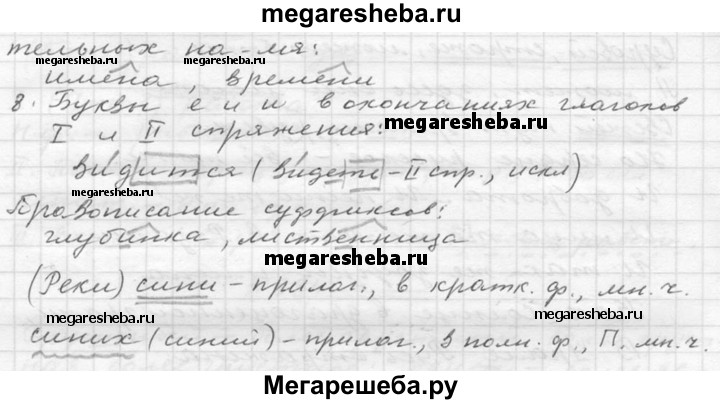 megaresheba.ru
тельных на -мя:
имена, времени
8. Буквы е и и в окончаниях глаголов
I и II спряжения:
megaresheba.ru
видится (видеть - II спр., искл)
megaresheba.ru
Правописание суффиксов:
глубинка, лиственница
megaresheba.ru
(Реки) сини - прилаг., в кратк. ф., мн. ч.
megaresheba.ru
megaresheba.ru
синих (синий) - прилаг., в полн. ф., П. мн. ч.
Мегарешеба.ру